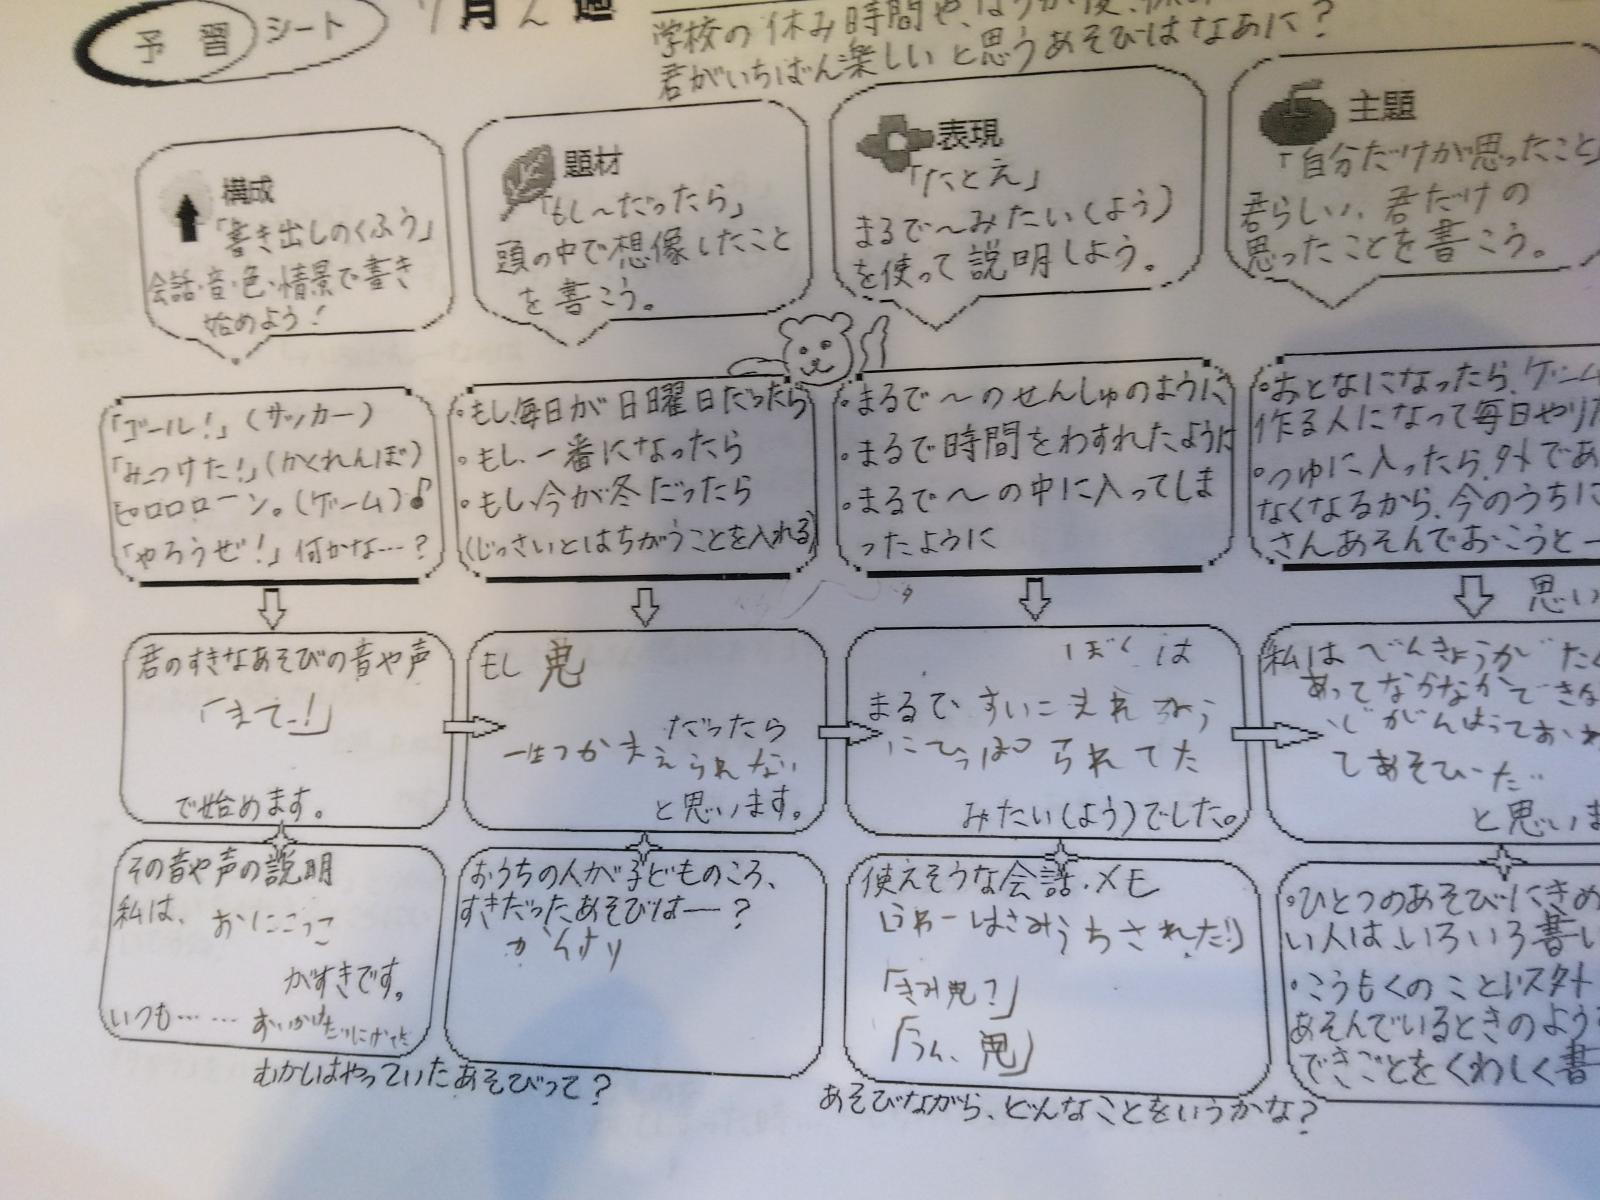 予習シート
月 週
学校の休み時間や、
君がいちばん楽しいと思うあそびはなあに?
構成
「書き出しのくふう」
会話・音・色・情景で書き
始めよう!
題材
「もし〜だったら」
頭の中で想像したこと
を書こう。
表現
「たとえ」
まるで〜みたい(よう)
を使って説明しよう。
主題
「自分だけが思ったこと」
君らしい、君だけの
思ったことを書こう。
「ゴール!」(サッカー)
「みつけた!」(かくれんぼ)
ピロロローン。(ゲーム)♪
「やろうぜ!」何かな…?
・もし、毎日が日曜日だったら
・もし、一番になったら
・もし、今が冬だったら
(じっさいとはちがうことを入れる)
・まるで〜のせんしゅのように
・まるで時間をわすれたように
・まるで〜の中に入ってしま
ったように
・おとなになったら、ゲーム
作る人になって毎日やり
・つゆに入ったら、外であ
なくなるから、今のうちに
さんあそんでおこうと
思い
君のすきなあそびの音や声
「まてー!」
で始めます。
もし 鬼
だったら
一生つかまえられない
と思います。
ぼくは
まるで
られてた
みたい(よう)でした。
私はべんきょうがたく
あってなかなかできな
てあそびた
と思いま
その音や声の説明
私は、おにごっこ
がすきです。
いつも……
おうちの人が子どものころ、
すきだったあそびは―?
かんけり
使えそうな会話・メモ
「うわーはさみうちされた!」
「きみ鬼?」
「うん、鬼」
・ひとつのあそびにきめ
い人は、いろいろ書い
・こうもくのことに
あそんでいるときのよう
できごとをくわしく書
むかしはやっていたあそびって?
あそびながら、どんなことをいうかな?